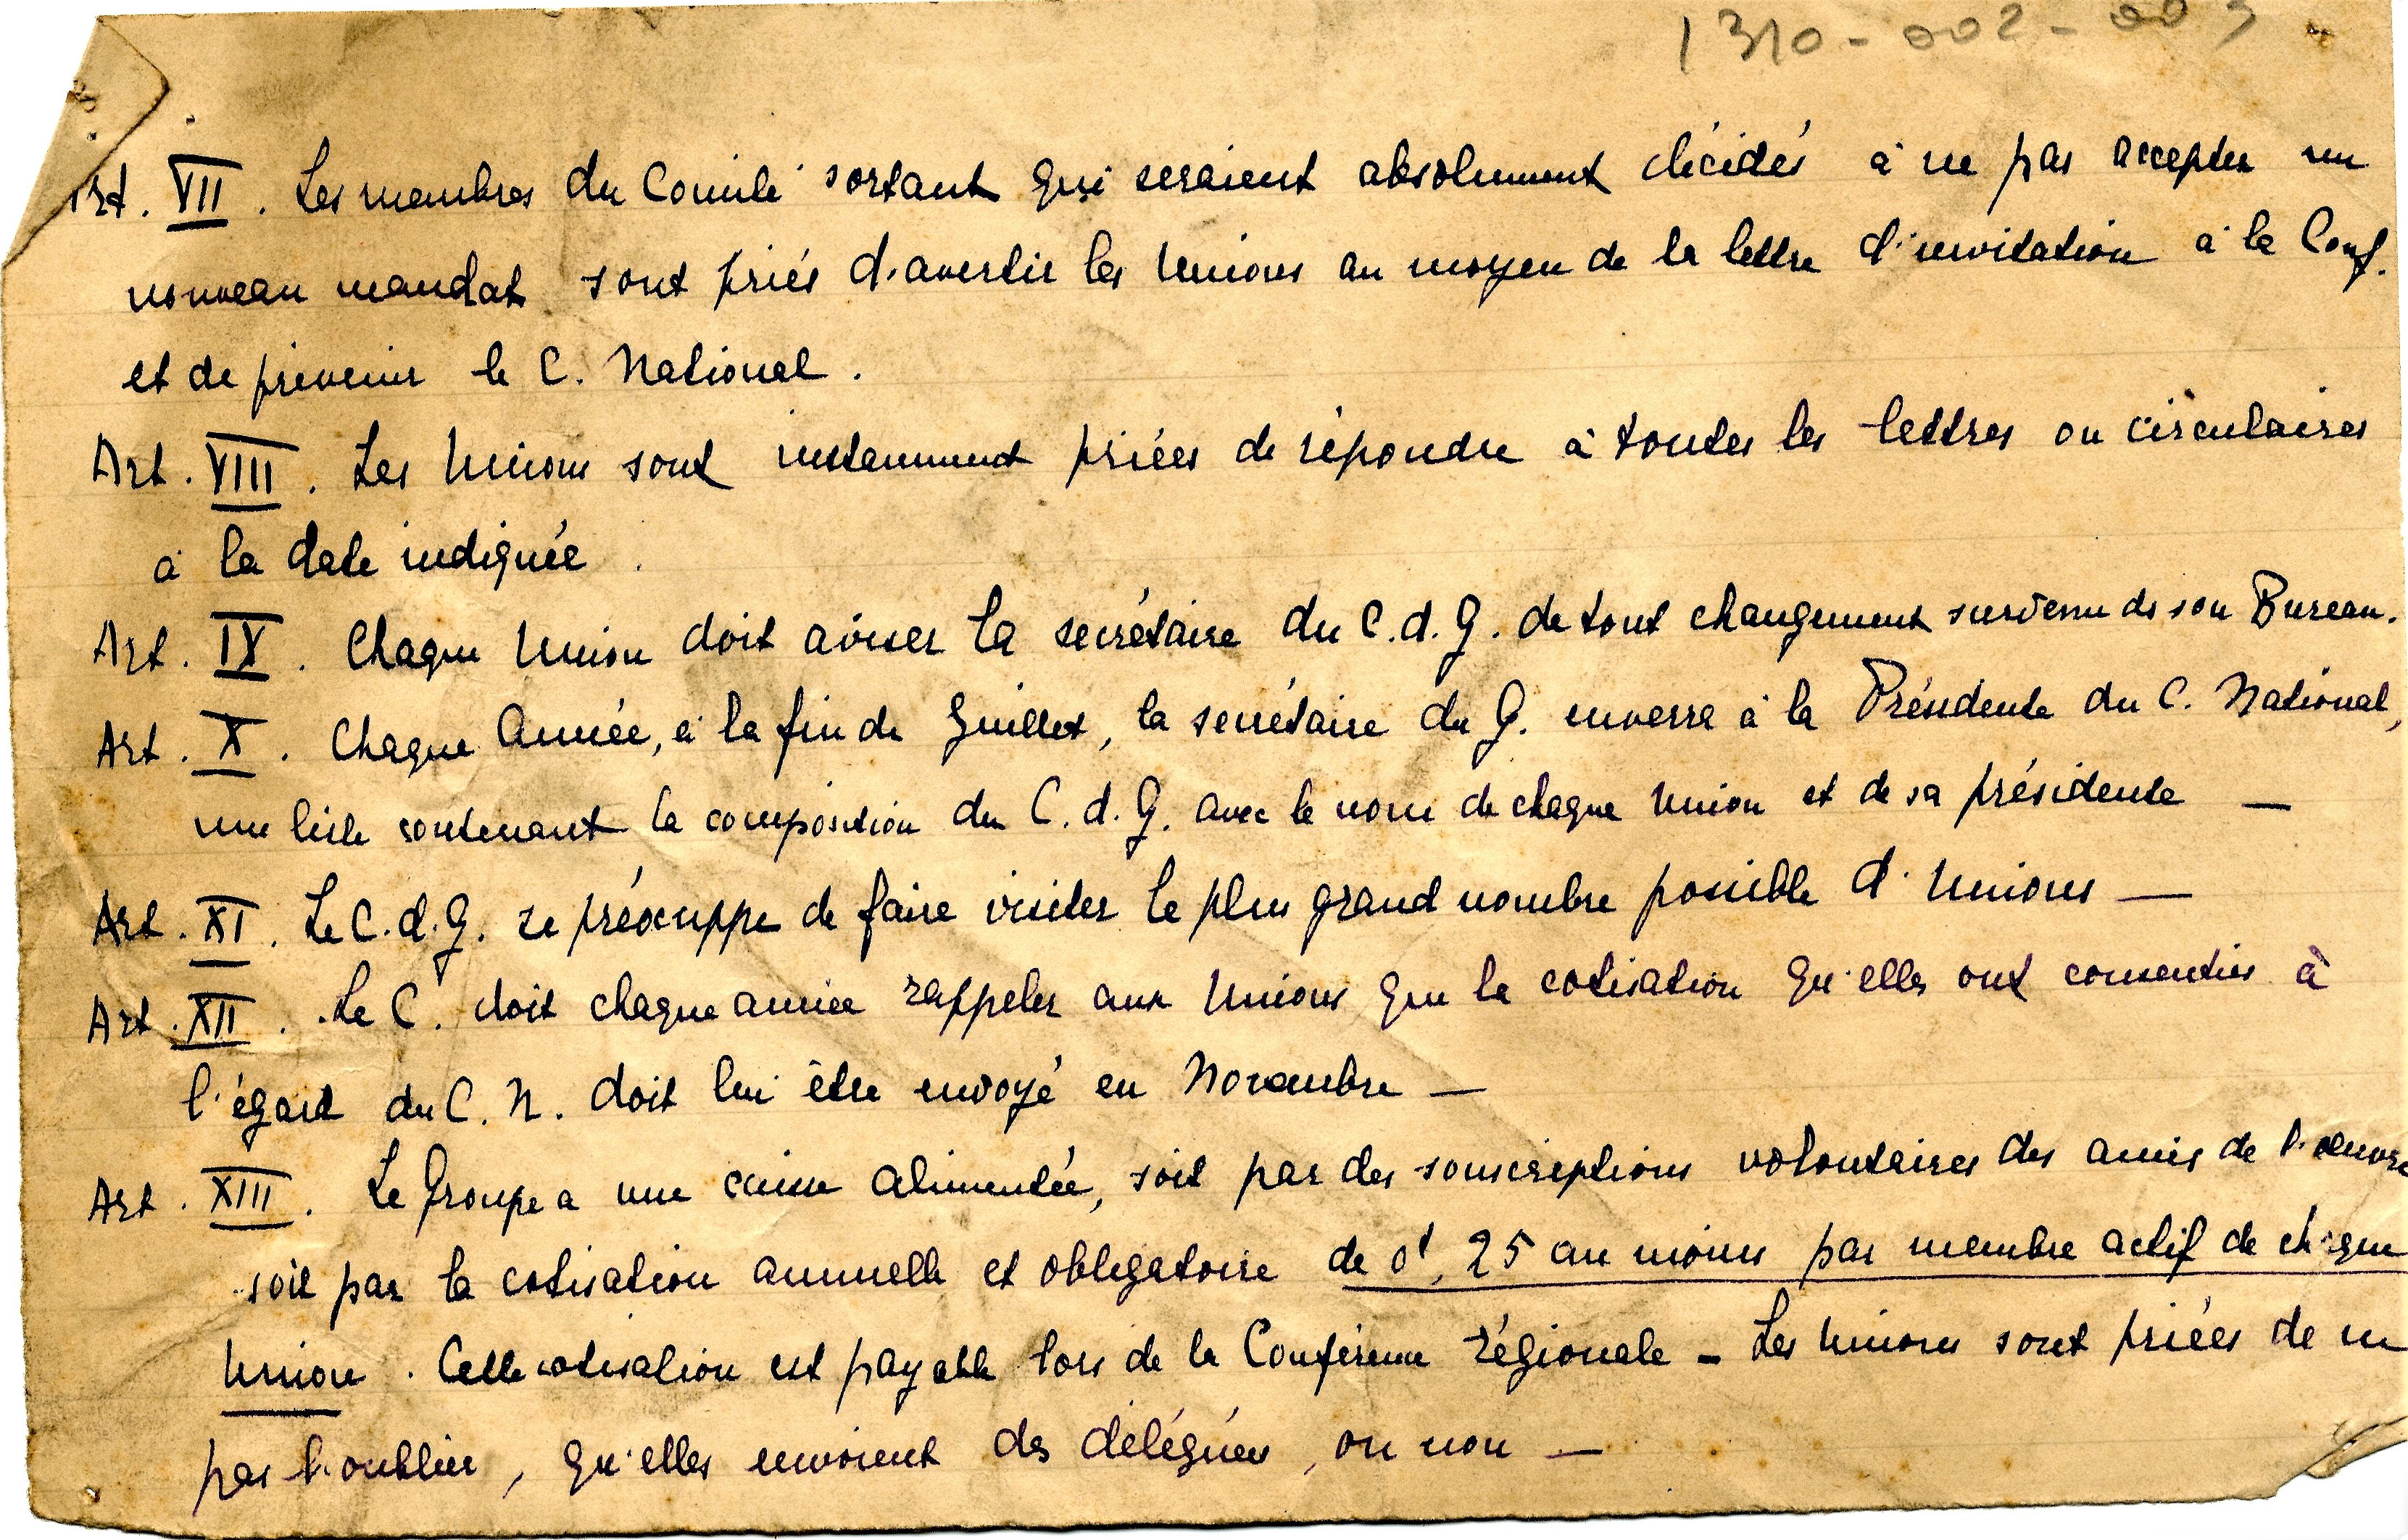 1310-002-003
Art. VII. Les membres du Comité sortant qui seraient absolument décidés à ne pas accepter un
nouveau mandat sont priés d'avertir les Unions au moyen de la lettre d'invitation à la Conf.
et de prévenir le C. National.
Art. VIII. Les Unions sont instamment priées de répondre à toutes les lettres ou circulaires
à la date indiquée.
Art. IX. Chaque Union doit aviser la secrétaire du C. d. G. de tout changement survenu ds son Bureau.
Art. X. Chaque Année, à la fin de Juillet, la secrétaire du G. enverra à la Présidente du C. National,
une liste contenant la composition du C. d. G. avec le nom de chaque Union et de sa présidente —
Art. XI. Le C. d. G. se préoccuppe de faire visiter le plus grand nombre possible d'Unions —
Art. XII. Le C. doit chaque année rappeler aux Unions que la cotisation qu'elles ont consenties à
l'égard du C. N. doit lui être envoyé en Novembre —
Art. XIII. Le Groupe a une caisse alimentée, soit par des souscriptions volontaires des amis de l'œuvre
soit par la cotisation annuelle et obligatoire de 0f, 25 au moins par membre actif de chaque
Union. Cette cotisation est payable lors de la Conférence régionale - Les Unions sont priées de ne
pas l'oublier, qu'elles envoient des déléguées, ou non —